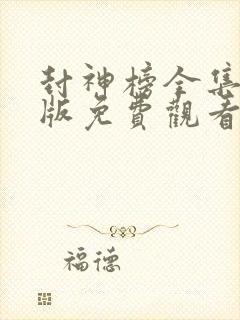 封神榜全集
版免費觀看
福德